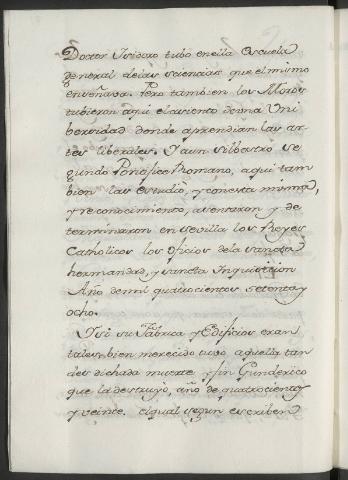 Doctor Isidoro tubo en ella Escuela
general de las sciencias que el mismo
enseñava. Pero tambien los Moros
tubieron aqui el asiento de una Uni
bersidad donde aprendian las ar-
tes liberales. Y aun Silbestro se
gundo Pontifice Romano, aqui tam
bien las estudió, y con esta misma,
y reconocimiento, asentaron y de
terminaron en sevilla los Reyes
Catholicos los oficios de la sancta
hermandad, y sancta Inquisicion
Año de mil quatrocientos setenta y
ocho.
Y si su Fabrica y Edificios eran
tales, bien merecido tuvo aquella tan
desdichada muerte y fin Gunderico
que la destruyó, año de quatrocientos
y veinte. el qual segun escriben